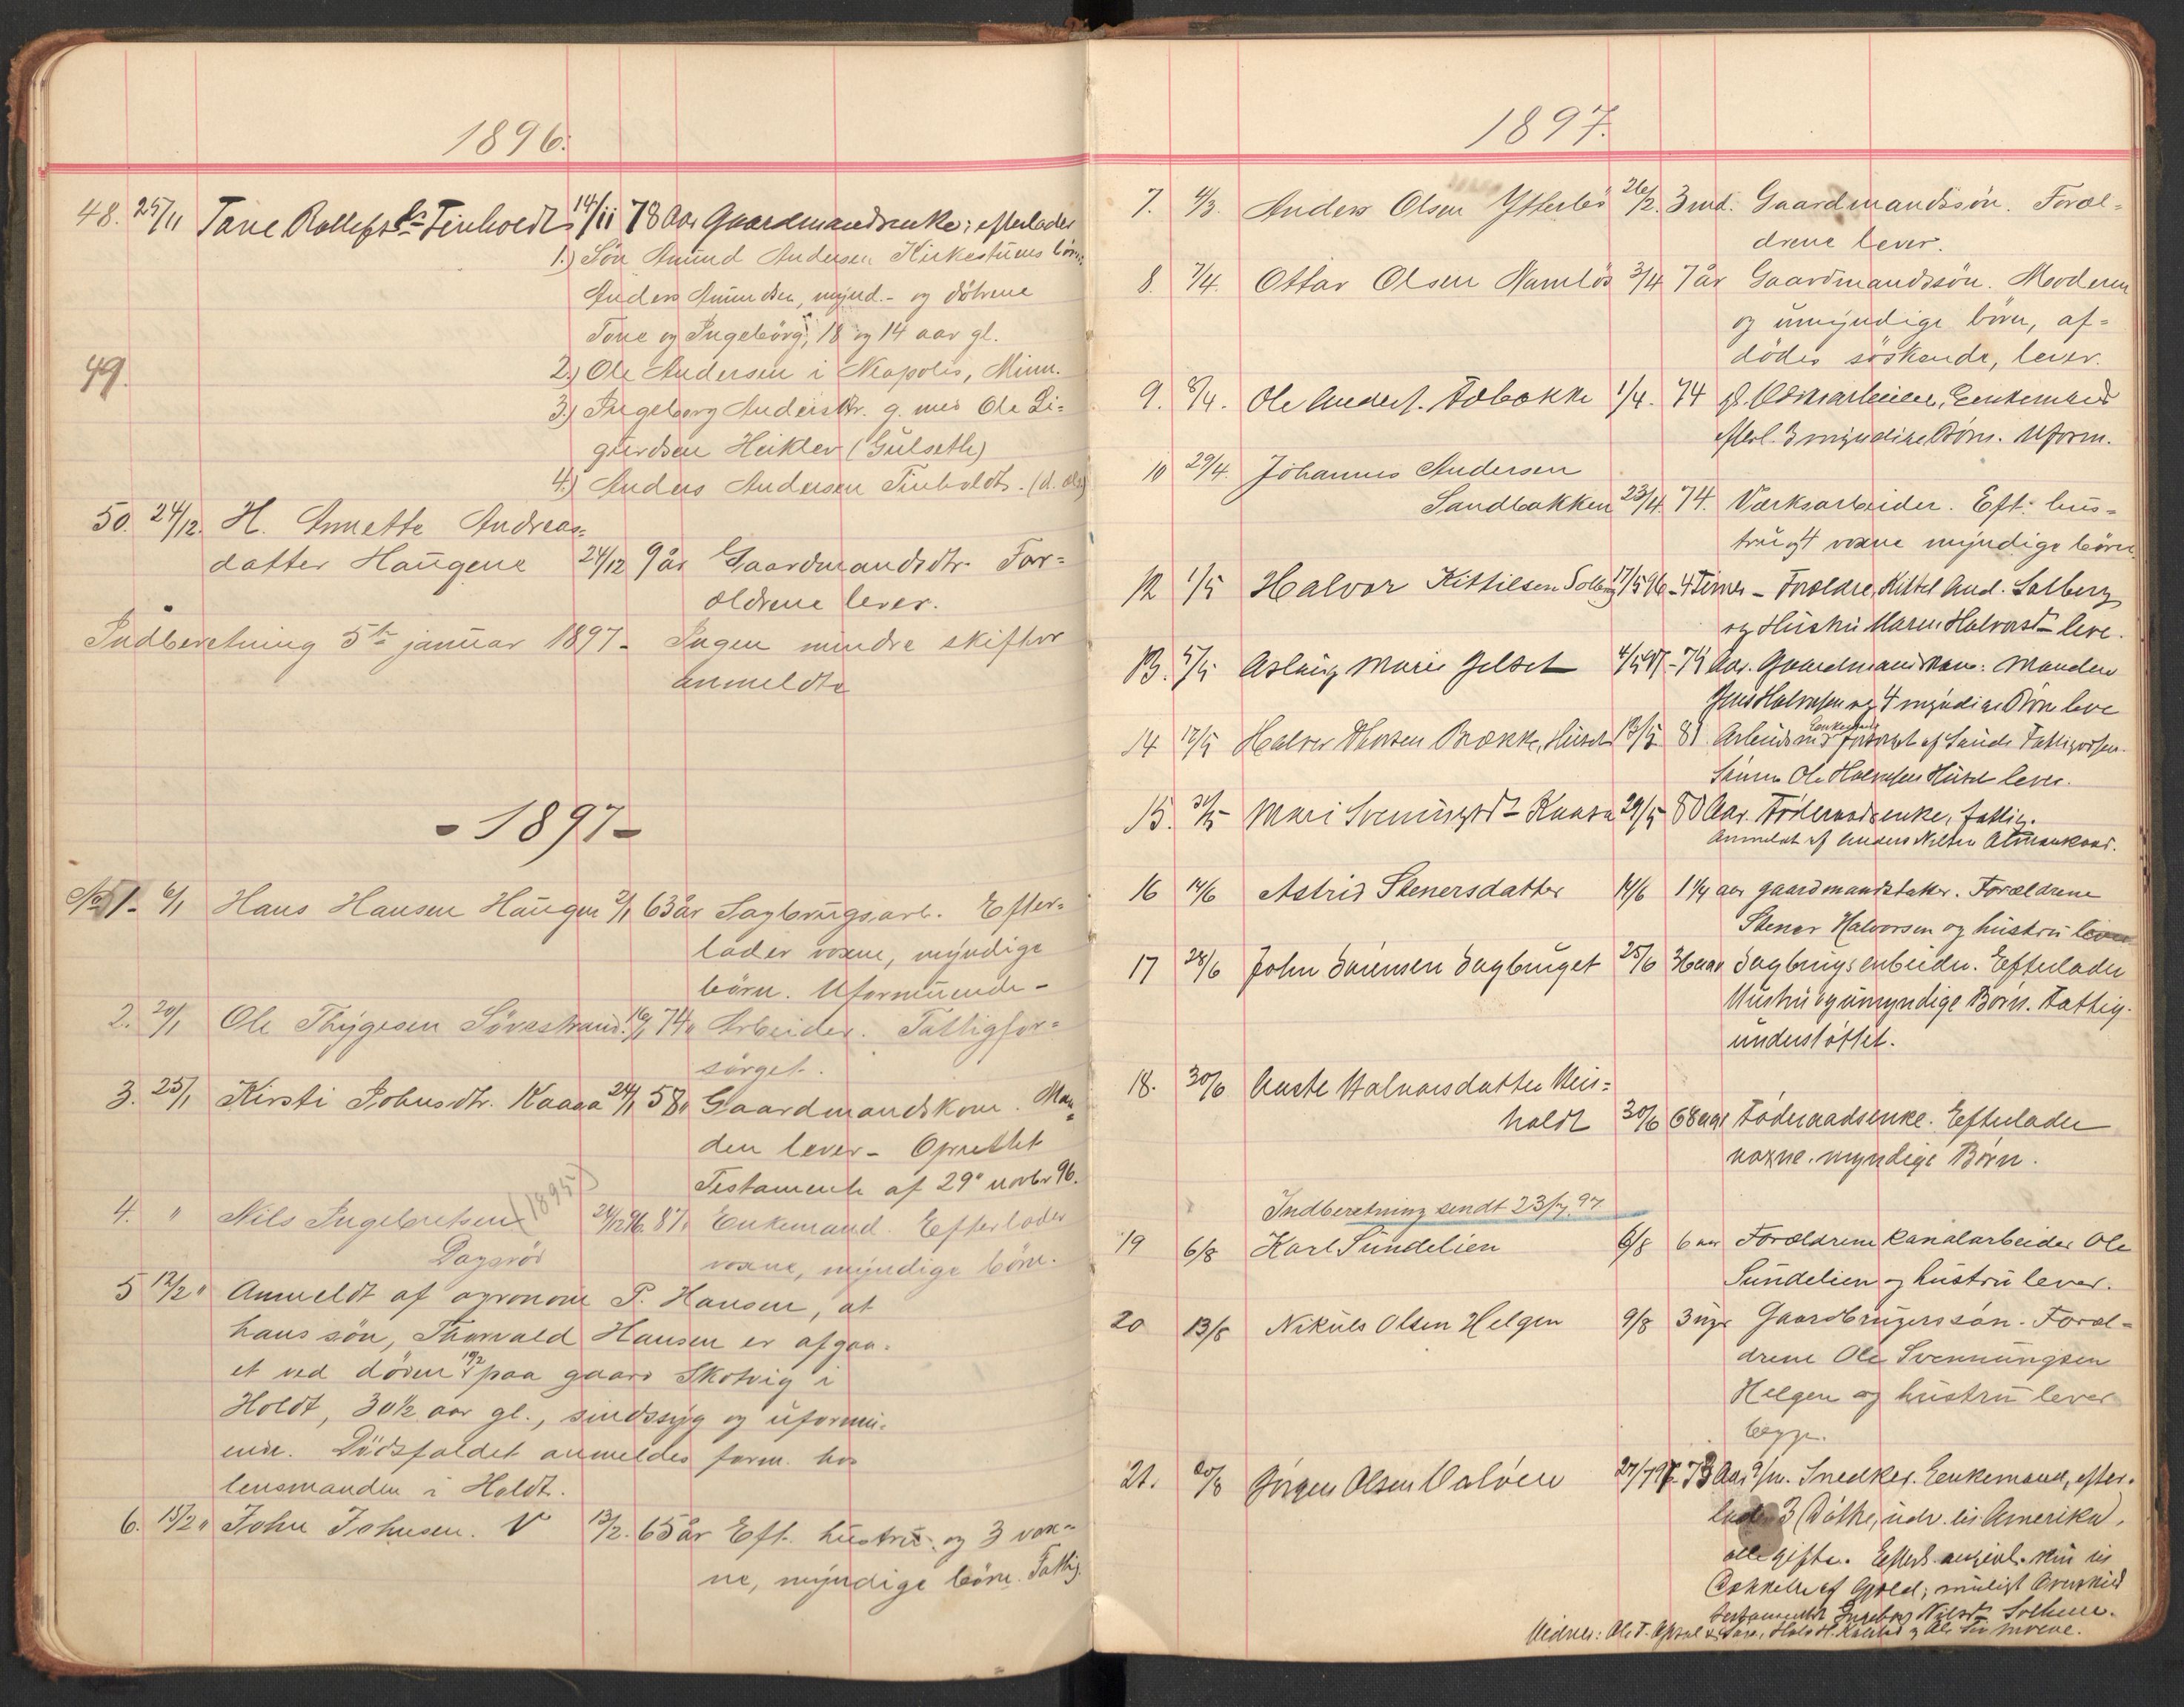 1896.
48. 25/11 Tone Rollefsdr Tinholdt 14/11 78 Aar Gaardmandsenke; efterlader
1.) Sön Amund Andersen Kirkestuens börn:
Anders Amundsen, mynd.- og døtrene
Tone og Ingebörg, 18 og 14 aar gl.
49. 2.) Ole Andersen i Neapolis, Minn.
3.) Ingeborg Andersdtr. g. med Ole Si=
gurdsen Heiklev (Gulseth)
4.) Anders Andersen Tinholdt.
50. 24/12. H. Annette Andreas=
datter Haugene 24/12 9 år Gaardmandsdtr. For=
ældrene lever.
Indberetning 5te januar 1897 - Ingen mindre skifter
anmeldte
- 1897 -
No 1. 6/1 Hans Hansen Haugen 2/1 63 år Sagbrugsarb. Efter=
lader voxne, myndige
börn. Uformuende -
2. 20/1 Ole Thygesen Sövestrand. 16/1 74 " Arbeider. Fattigfor=
sörget.
3. 25/1 Kirsti Johnsdtr. Kaasa 24/1 58 " Gaardmandskone. Man=
den lever - Oprettet
Testamente af 29' novbr 96.
4. " Nils Ingebretsen (1895) 24/12 96. 87 " Enkemand. Efterlader
Dagsröd voxne, myndige börn.
5 12/2 " Anmeldt af agronom P. Hansen, at
hans sön, Thorvald Hansen er afgaa=
et ved döden 10/2 paa gaard Skotvig i
Holdt, 30½ aar gl., sindssyg og uformu=
ende. Dödsfaldet anmeldes form. hos
lensmanden i Holdt.
6. 15/2 " John Johnsen. V 13/2. 65 år Eft. hustru og 3 vox=
ne, myndige börn. Fattig.
1897.
7. 4/3. Anders Olsen Ytterbö 26/2. 3 md. Gaardmandssön. Foræl=
drene lever.
8. 7/4. Ottar Olsen Namlös 3/4 7 år Gaardmandssön. Moderen
og umyndige börn, af=
dödes söskende, lever.
9. 8/4. Ole Anders. Aabakke 1/4. 74 Enkemand
efterl. 3 myndige Børn. Uform.
10 29/4. Johannes Andersen
Sandbakken 23/4 74. Værksarbeider. Eft. hus=
tru og 4 voxne myndige börn.
12 1/5 Halvor Kittilsen Solberg 17/5 96 - 4 Timer - Forældre Kittel And. Solberg
og Hustru Maren Halvorsdr leve.
13. 5/5 Aslaug Marie Jelset 4/5 97 - 79 Aar. Gaardmandskone: Manden
Jens Halvorsen og 4 myndige Børn leve
14 12/5 Halvor Brække, 81 Enkemand forsørget af Saude Fattigvæsen.
Sönnen Ole Halvorsen lever.
15. 31/5 Mari Sveinungsdr Kaasa 29/5 80 Aar. Föderaadsenke, fattig.
Anmeldt af Anders Nilsen
16 14/6 Astrid Stenersdatter 14/6 1¼ aar gaardmandsdatter. Forældrene
Stener Halvorsen og hustru lever
17 28/6 John Sörensen Sagbruget 25/6 36 aar Sagbrugsarbeider. Efterlader
Hustru og umyndige Børn. Fattig-
understöttet.
18. 30/6 Aaste Halvorsdatter Veis=
holdt 30/6 68 aar Föderaadsenke. Efterlader
voxne myndige Børn.
Indberetning sendt 23/7. 97
19 6/8 Karl Sundelien 6/8 6 aar Forældrene kanalarbeider Ole
Sundelien og hustru lever.
20 13/8 Nikuls Olsen Helgen 9/8 3 uger Gaardbrugerssøn. Foræl=
drene Ole Svennungsen
Helgen og hustru lever
begge.
21. 20/8 Jørgen Olsen Valöen 27/7 97. 73 Aar Snedker. Enkemand, efter-
lader 3 Døttre, udv. til Amerika,
alle gifte. kun til
Dækkelse af Gjæld; muligt Overskud
testamenteret Ingeborg Nilsdr
Vidner: Ole T.